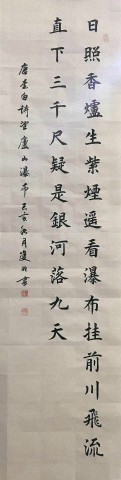 日照香爐生紫煙遥看瀑布挂前川飛流
直下三千尺疑是銀河落九天
唐李白詩望廬山瀑布己亥秋月